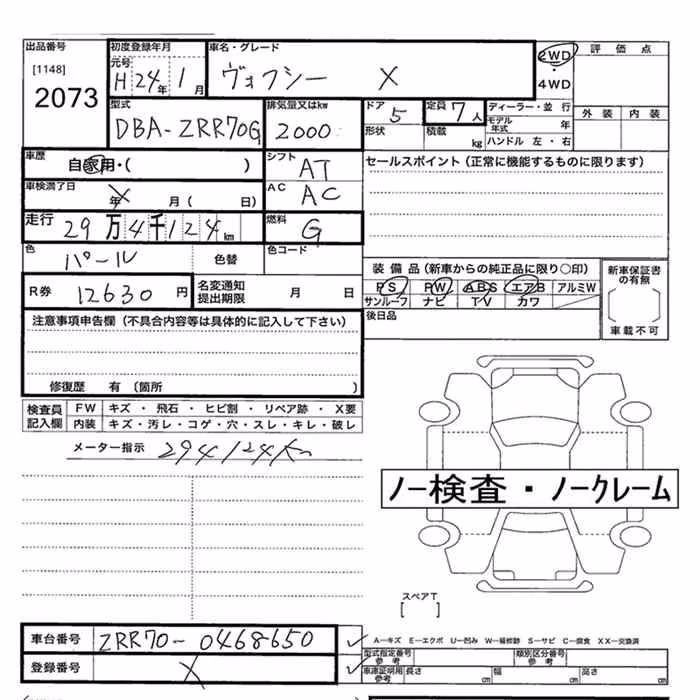 出品番号 初度登録年月 車名・グレード 評価点
[1148] 元号 2WD
2073 H 24年 1月 ヴォクシー X ・ 4WD
型式 排気量又はkw ドア 5 定員 7人 ディーラー・並行 外装 内装
DBA-ZRR70G 2000 形状 積載 kg モデル年式 年
ハンドル 左・右
車歴 自家用・( ) シフト AT セールスポイント(正常に機能するものに限ります)
車検満了日 年 X 月( 日) AC AC
走行 29万4千124km 燃料 G
色 パール 色替 色コード
装備品(新車からの純正品に限り○印) 新車保証書の有無
R券 12630円 名変通知提出期限 月 日 PS PW ABS エアB アルミW
サンルーフ ナビ TV カワ
注意事項申告欄(不具合内容等は具体的に記入して下さい) 後日品 車載不可
修復歴 有 〔箇所 〕
検査員記入欄 FW キズ・飛石・ヒビ割・リペア跡・X要
内装 キズ・汚レ・コゲ・穴・スレ・キレ・破レ
メーター指示 294124km
ノー検査・ノークレーム
スペアT
[ ]
車台番号 ZRR70-0468650 ✓ A－キズ E－エクボ U－凹み W－補修跡 S－サビ C－腐食 XX－交換済
型式指定番号 参考 類別区分番号 参考
登録番号 X ✓ 車庫証明用参考 長さ cm 幅 cm 高さ cm